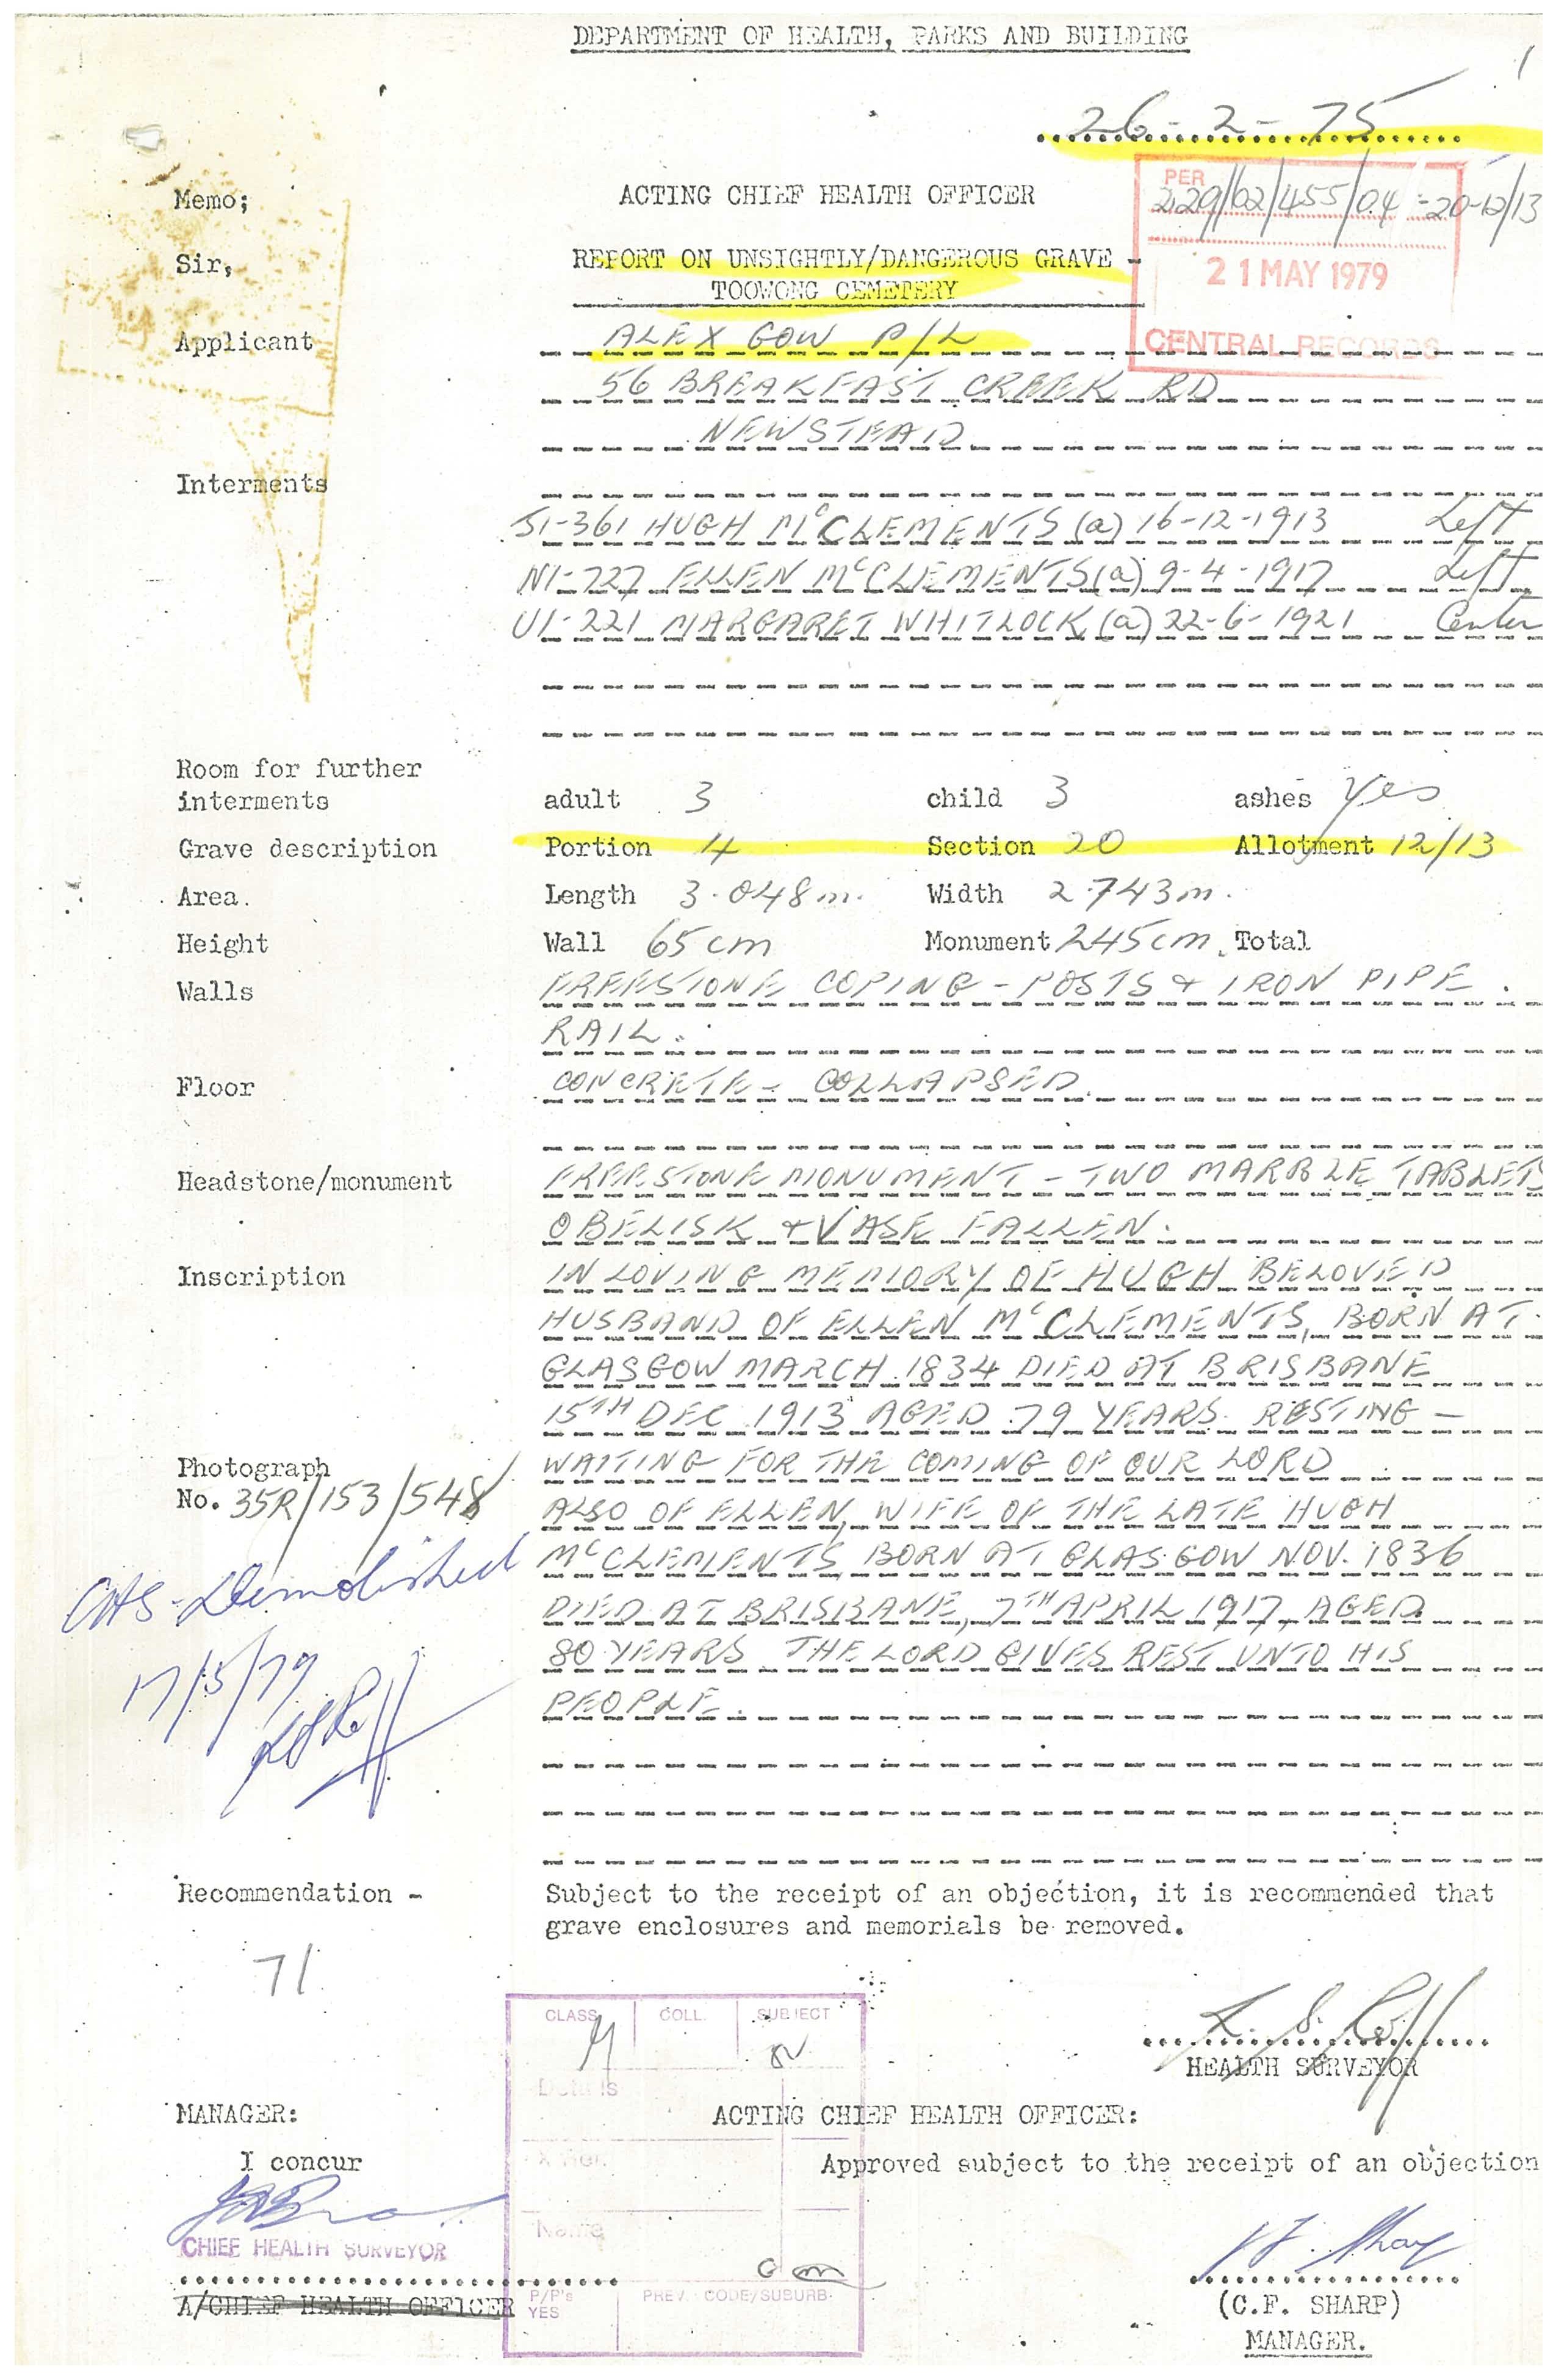 DEPARTMENT OF HEALTH, PARKS AND BUILDING
1
26-2-75
PER
229/02/455/04-20-12/13
21 MAY 1979
CENTRAL RECORDS
Memo; ACTING CHIEF HEALTH OFFICER
Sir, REPORT ON UNSIGHTLY/DANGEROUS GRAVE -
TOOWONG CEMETERY
Applicant ALEX GOW P/L
56 BREAKFAST CREEK RD
NEWSTEAD
Interments
J1-361 HUGH McCLEMENTS (a) 16-12-1913 Left
N1-727 ELLEN McCLEMENTS (a) 9-4-1917 Left
U1-221 MARGARET WHITLOCK (a) 22-6-1921 Center
Room for further
interments adult 3 child 3 ashes Yes
Grave description Portion 4 Section 20 Allotment 12/13
Area. Length 3.048m. Width 2.743m.
Height Wall 65cm Monument 245cm. Total
Walls FREESTONE COPING - POSTS & IRON PIPE
RAIL.
Floor CONCRETE - COLLAPSED.
Headstone/monument FREESTONE MONUMENT - TWO MARBLE TABLETS
OBELISK & VASE FALLEN.
Inscription IN LOVING MEMORY OF HUGH BELOVED
HUSBAND OF ELLEN McCLEMENTS, BORN AT
GLASGOW MARCH 1834 DIED AT BRISBANE
15TH DEC 1913 AGED 79 YEARS. RESTING -
Photograph WAITING FOR THE COMING OF OUR LORD
No. 35R/153/548 ALSO OF ELLEN, WIFE OF THE LATE HUGH
McCLEMENTS BORN AT GLASGOW NOV. 1836
DIED AT BRISBANE, 7TH APRIL 1917, AGED
80 YEARS. THE LORD GIVES REST UNTO HIS
PEOPLE.
Demolished
17/5/79
Recommendation - Subject to the receipt of an objection, it is recommended that
grave enclosures and memorials be removed.
71
HEALTH SURVEYOR
CLASS COLL. SUBJECT
Details
MANAGER: ACTING CHIEF HEALTH OFFICER:
I concur Approved subject to the receipt of an objection
Name
CHIEF HEALTH SURVEYOR
A/CHIEF HEALTH OFFICER
P/P's
YES
PREV. CODE/SUBURB
(C.F. SHARP)
MANAGER.